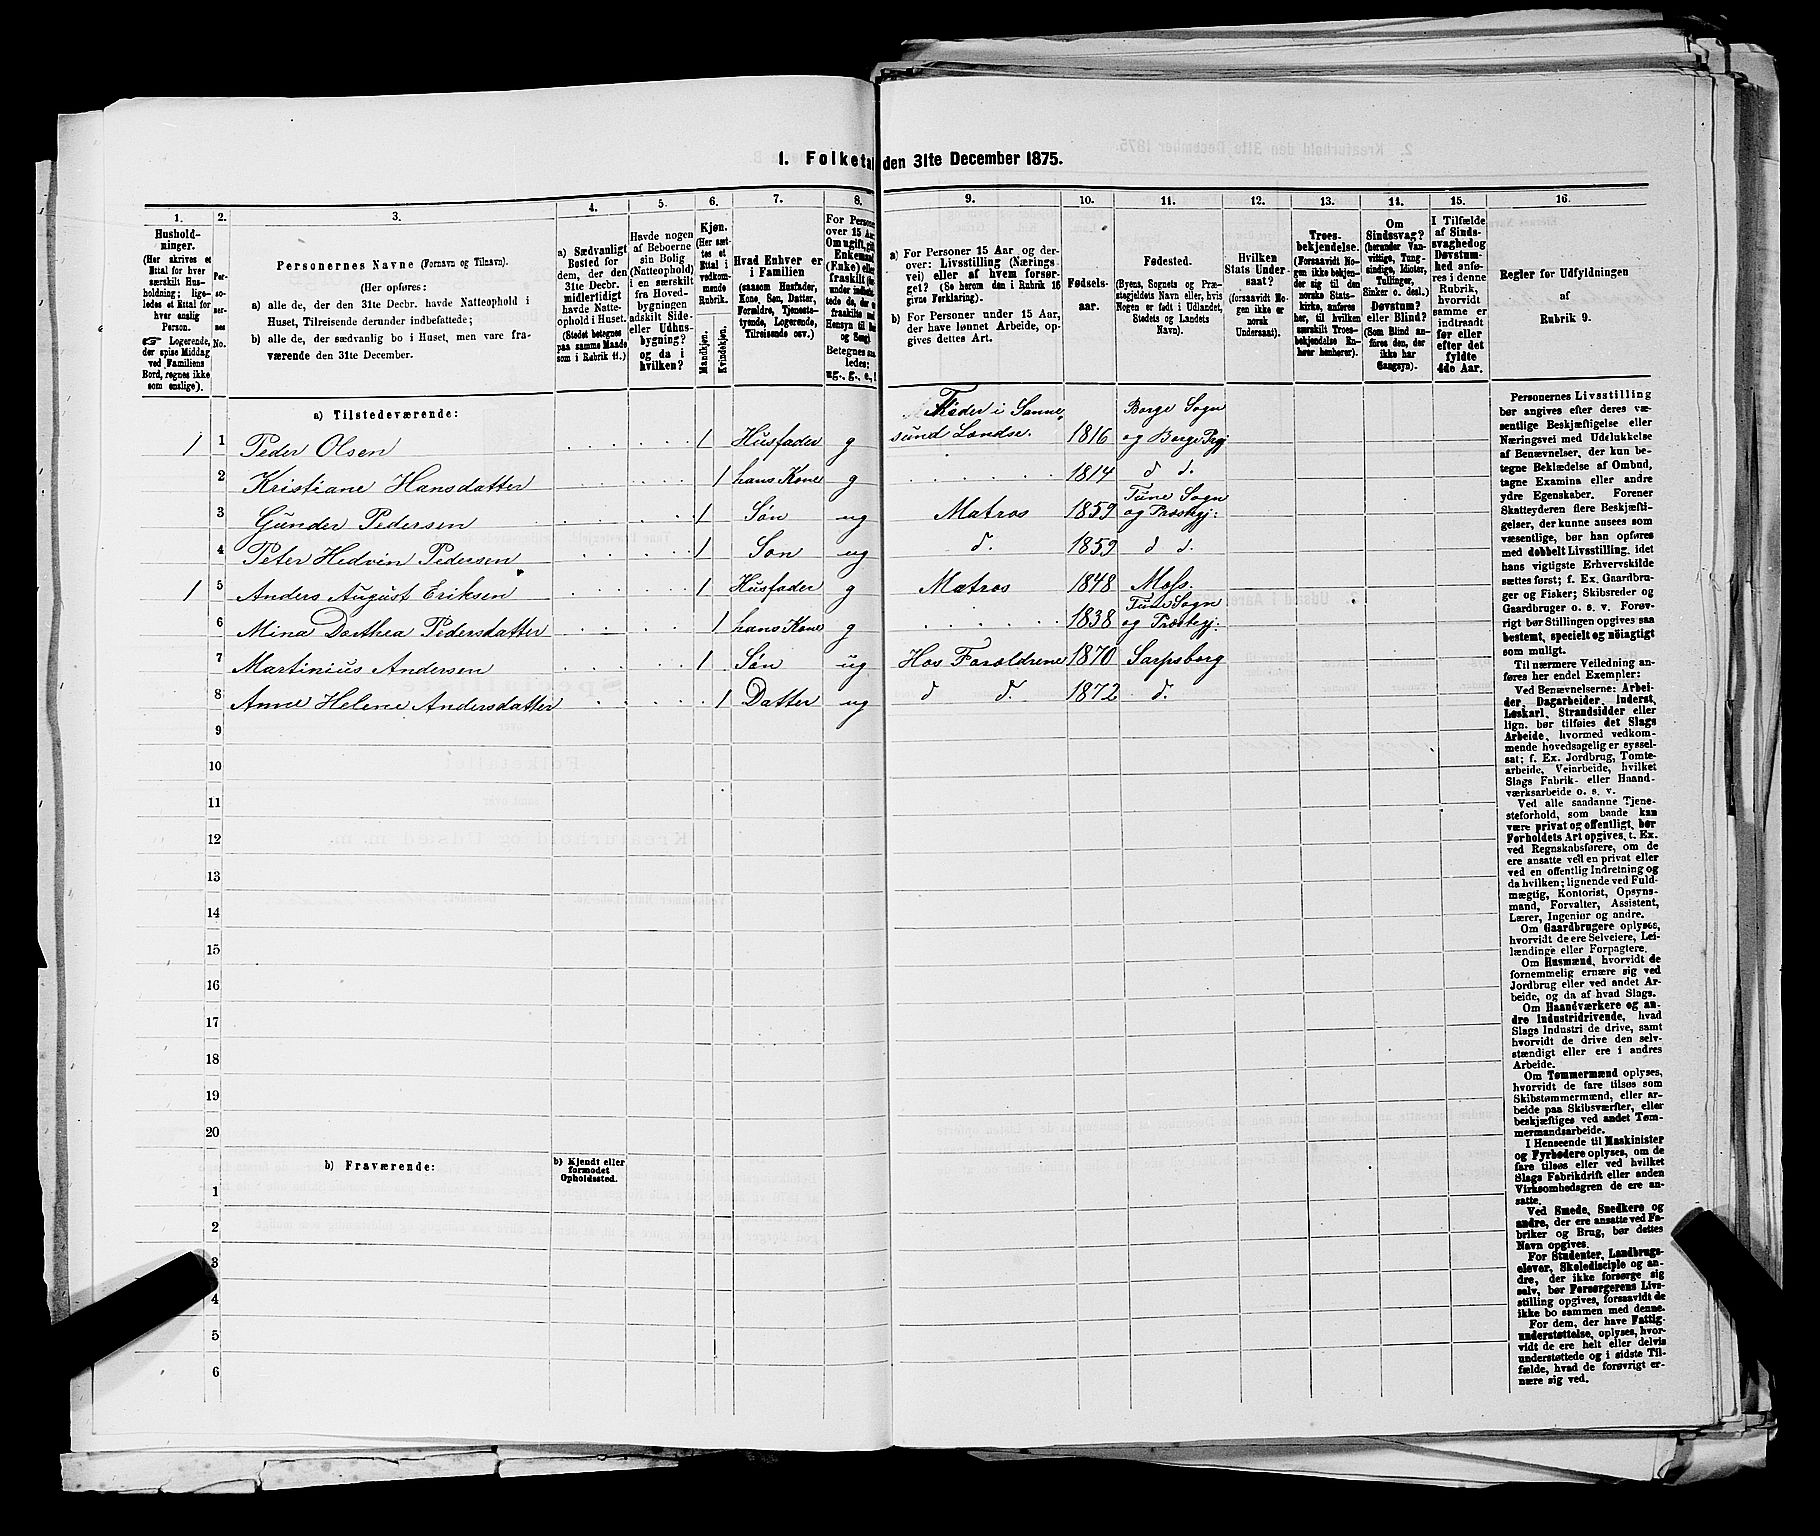 1. Folketal den 31te December 1875.
1. 2. 3. 4. 5. 6. 7. 8. 9. 10. 11. 12. 13. 14. 15. 16.
Hushold-
ninger.
(Her skrives et
Ettal for hver
særskilt Hus-
holdning; lige-
ledes et Ettal for
hver enslig
Person.
☞ Logerende,
der spise Middag
ved Familiens
Bord, regnes ikke
som enslige).
Per-
so-
ner-
nes
No.
Personernes Navne (Fornavn og Tilnavn).
(Her opføres:
a) alle de, der den 31te Decbr. havde Natteophold i
Huset, Tilreisende derunder indbefattede;
b) alle de, der sædvanlig bo i Huset, men vare fra-
værende den 31te December.
a) Sædvanligt
Bosted for
dem, der den
31te Decbr.
midlertidigt
havde Natte-
ophold i Huset.
(Stedet betegnes
paa samme Maade
som i Rubrik 11.)
Havde nogen
af Beboerne
sin Bolig
(Natteophold)
i en særskilt
fra Hoved-
bygningen
adskilt Side-
eller Udhus-
bygning?
og da i
hvilken?
Kjøn.
(Her sæt-
tes et
Ettal i
vedkom-
mende
Rubrik.
Mandkjøn.
Kvindekjøn.
Hvad Enhver er
i Familien
(saasom Husfader,
Kone, Søn, Datter,
Forældre, Tjeneste-
tyende, Logerende,
Tilreisende osv.)
For Personer
over 15 Aar:
a) For Personer 15 Aar og der-
over: Livsstilling (Nærings
vei) eller af hvem forsør-
get? (Se herom den i Rubrik 16
givne Forklaring).
b) For Personer under 15 Aar,
der have lønnet Arbeide, op-
gives dettes Art.
Fødsels-
aar.
Fødested.
(Byens, Sognets og Præ-
stegjeldets Navn eller, hvis
Nogen er født i Udlandet,
Stedets og Landets
Navn).
Hvilken
Stats Under-
saat?
(forsaavidt No-
gen ikke er
norsk
Undersaat).
Troes-
bekjendelse.
(Forsaavidt No-
gen ikke bekjen-
der sig til den
norske Stats-
kirke, anføres
her, til hvilken
særskilt Troes-
bekjendelse En-
hver henhører).
Om
Sindssvag?
(herunder Van-
vittige, Tung-
sindige, Idioter,
Tullinger,
Sinker o. desl.)
Døvstum?
eller Blind?
(Som Blind an-
føres den, der
ikke har
Gangsyn).
I Tilfælde
af Sinds-
svaghed og
Døvstum-
hed anfø-
res i denne
Rubrik,
hvorvidt
samme er
indtraadt
før eller
efter det
fyldte
4de Aar.
Regler for Udfyldningen
af
Rubrik 9.
a) Tilstedeværende:
1 1 Peder Olsen 1 Husfader g Fløder i Sanne- sund Lændse. 1816 Borge Sogn og Borge Prgj
2 Kristiane Hansdatter 1 hans Kone g 1814 d d.
3 Gunder Pedersen 1 Søn ug Matros 1859 Tune Sogn og Præstegj:
4 Peter Hedvin Pedersen 1 Søn ug d. 1859 d d.
1 5 Anders August Eriksen 1 Husfader g Matros 1848 Moss.
6 Mina Dorthea Pedersdatter 1 hans Kone g 1838 Tune Sogn og Præstegj:
7 Martinius Andersen 1 Søn ug Hos Forældrene 1870 Sarpsborg
8 Anne Helene Andersdatter 1 Datter ug d d. 1872 d.
9
10
11
12
13
14
15
16
17
18
19
20
b) Fraværende:
b) Kjendt eller
formodet
Opholdssted.
1
2
3
4
5
6
Personernes Livsstilling
bør angives efter deres væ-
sentlige Beskjæftigelse eller
Næringsvei med Udelukkelse
af Benævnelser, der kun be-
tegne Beklædelse af Ombud,
tagne Examina eller andre
ydre Egenskaber. Forener
Skatteyderen flere Beskjæfti-
gelser, der kunne ansees som
væsentlige, bør han opføres
med dobbelt Livsstilling, idet
hans vigtigste Erhvervskilde
sættes først; f. Ex. Gaardbru-
ger og Fisker; Skibsreder og
Gaardbruger o. s. v. Forøv-
rigt bør Stillingen opgives saa
bestemt, specielt og nøiagtigt
som muligt.
Til nærmere Veiledning an-
føres her endel Exempler:
Ved Benævnelserne: Arbei-
der, Dagarbeider, Inderst,
Løskarl, Strandsidder eller
lign. bør tilføies det Slags
Arbeide, hvormed vedkom-
mende hovedsagelig er syssel-
sat; f. Ex. Jordbrug, Tomte-
arbeide, Veiarbeide, hvilket
Slags Fabrik- eller Haand-
værksarbeide o. s. v.
Ved alle saadanne Tjene-
steforhold, som baade kan
være privat og offentligt, bør
Forholdets Art opgives, t. Ex.
ved Regnskabsførere, om de
ere ansatte ved en privat eller
ved en offentlig Indretning og
da hvilken; lignende ved Fuld-
mægtig, Kontorist, Opsyns-
mand, Forvalter, Assistent,
Lærer, Ingeniør og andre.
Om Gaardbrugere oplyses,
hvorvidt de ere Selveiere, Lei-
lændinge eller Forpagtere.
Om Husmænd, hvorvidt de
fornemmelig ernære sig ved
Jordbrug eller ved andet Ar-
beide, og da af hvad Slags.
Om Haandværkere og an-
dre Industridrivende, hvad
Slags Industri de drive, samt
hvorvidt de drive den selv-
stændigt eller ere i andres
Arbeide.
Om Tømmermænd oplyses,
hvorvidt de fare tilsøs som
Skibstømmermænd, eller ar-
beide paa Skibsværfter, eller
beskjæftiges ved andet Tøm-
mermandsarbeide.
I Henseende til Maskinister
og Fyrbødere oplyses, om de
fare tilsøs eller ved hvilket
Slags Fabrikdrift eller anden
Virksomhedsgren de ere an-
satte.
Ved Smede, Snedkere og
andre, der ere ansatte ved Fa-
briker og Brug, bør dettes
Navn opgives.
For Studenter, Landbrugs-
elever, Skoledisciple og an-
dre, der ikke forsørge sig
selv, bør Forsørgerens Livs-
stilling opgives, forsaavidt de
ikke bo sammen med denne.
For dem, der have Fattig-
understøttelse, oplyses, hvor-
vidt de ere helt eller delvis
understøttede og i sidste Til-
fælde, hvad de forøvrigt er-
nære sig ved.